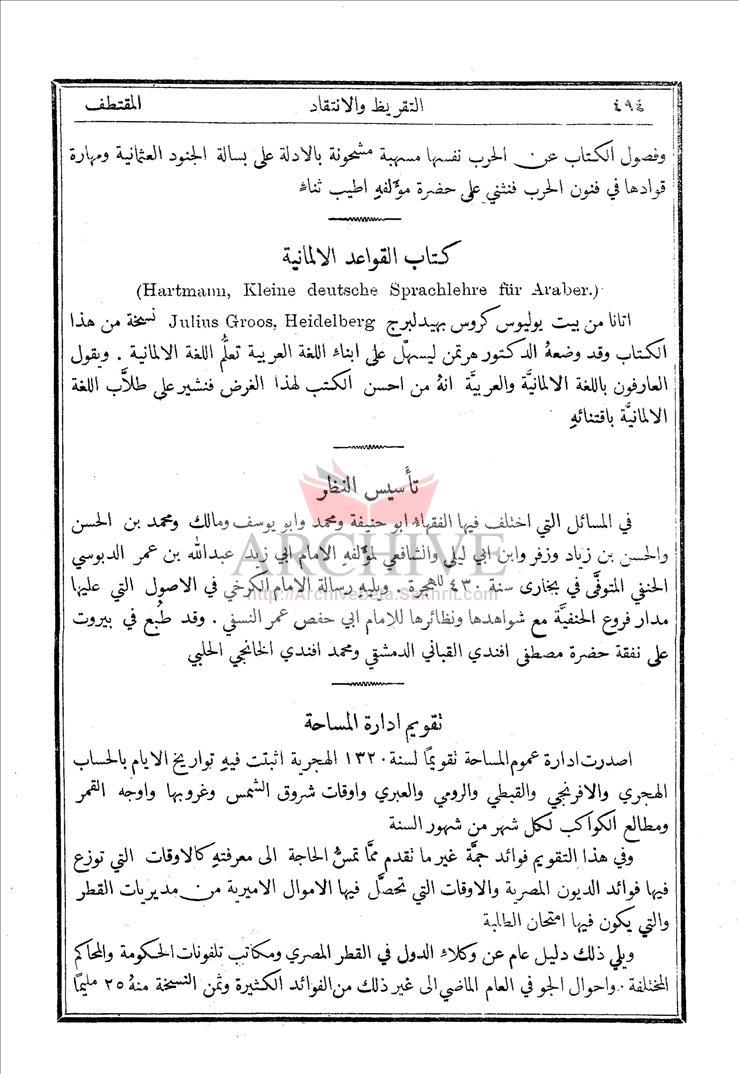 ٤٩٤ التقريظ والانتقاد المقتطف
وفصول الكتاب عن الحرب نفسها مسهبة مشحونة بالادلة على بسالة الجنود العثمانية ومهارة
قوادها في فنون الحرب فنثني على حضرة مؤلفهِ اطيب ثناءً
كتاب القواعد الالمانية
(Hartmann, Kleine deutsche Sprachlehre für Araber.)
اتانا من بيت يوليوس كروس بهيدلبرج Julius Groos, Heidelberg نسخة من هذا
الكتاب وقد وضعهُ الدكتور هرتمن ليسهّل على ابناء اللغة العربية تعلُّم اللغة الالمانية . ويقول
العارفون باللغة الالمانيَّة والعربيَّة انهُ من احسن الكتب لهذا الغرض فنشير على طلاَّب اللغة
الالمانيَّة باقتنائهِ
تأسيس النظر
في المسائل التي اختلف فيها الفقهاءُ ابو حنيفة ومحمد وابو يوسف ومالك ومحمد بن الحسن
والحسن بن زياد وزفر وابن ابي ليلى والشافعي لمؤلفهِ الامام ابي زيد عبدالله بن عمر الدبوسي
الحنفي المتوفَّى في بخارى سنة ٤٣٠ للهجرة . ويليهِ رسالة الامام الكرخي في الاصول التي عليها
مدار فروع الحنفيَّة مع شواهدها ونظائرها للامام ابي حفص عمر النسفي . وقد طُبع في بيروت
على نفقة حضرة مصطفى افندي القباني الدمشقي ومحمد افندي الخانجي الحلبي
ARCHIVE
http://Archivebeta.Sakhrit.com
تقويم ادارة المساحة
اصدرت ادارة عموم المساحة تقويمًا لسنة ١٣٢٠ الهجرية اثبتت فيهِ تواريخ الايام بالحساب
الهجري والافرنجي والقبطي والرومي والعبري واوقات شروق الشمس وغروبها واوجه القمر
ومطالع الكواكب لكل شهر من شهور السنة
وفي هذا التقويم فوائد جمَّة غير ما نقدم ممَّا تمسُّ الحاجة الى معرفتهِ كالاوقات التي توزع
فيها فوائد الديون المصرية والاوقات التي تحصَّل فيها الاموال الاميرية من مديريات القطر
والتي يكون فيها امتحان الطلبة
ويلي ذلك دليل عام عن وكلاء الدول في القطر المصري ومكاتب تلفونات الحكومة والمحاكم
المختلفة . واحوال الجو في العام الماضي الى غير ذلك من الفوائد الكثيرة وثمن النسخة منهُ ٢٥ مليمًا